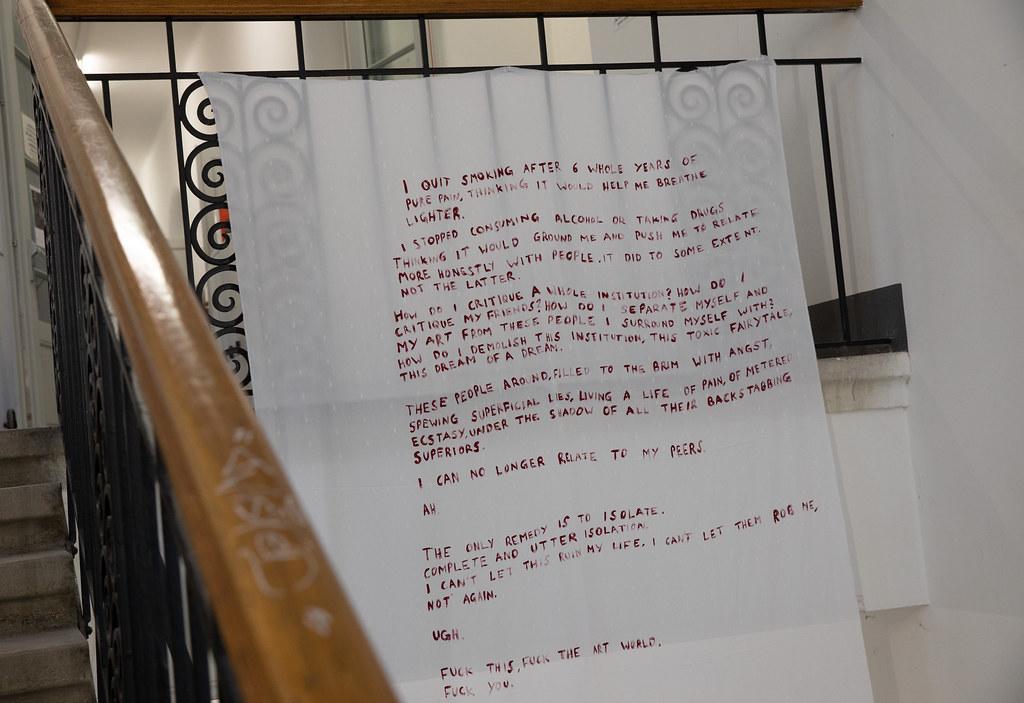 I QUIT SMOKING AFTER 6 WHOLE YEARS OF
PURE PAIN, THINKING IT WOULD HELP ME BREATHE
LIGHTER.
I STOPPED CONSUMING ALCOHOL OR TAKING DRUGS
THINKING IT WOULD GROUND ME AND PUSH ME TO RELATE
MORE HONESTLY WITH PEOPLE. IT DID TO SOME EXTENT.
NOT THE LATTER.
HOW DO I CRITIQUE A WHOLE INSTITUTION? HOW DO I
CRITIQUE MY FRIENDS? HOW DO I SEPARATE MYSELF AND
MY ART FROM THESE PEOPLE I SURROUND MYSELF WITH?
HOW DO I DEMOLISH THIS INSTITUTION, THIS TOXIC FAIRYTALE,
THIS DREAM OF A DREAM.
THESE PEOPLE AROUND, FILLED TO THE BRIM WITH ANGST,
SPEWING SUPERFICIAL LIES, LIVING A LIFE OF PAIN, OF METERED
ECSTASY, UNDER THE SHADOW OF ALL THEIR BACKSTABBING
SUPERIORS.
I CAN NO LONGER RELATE TO MY PEERS.
AH.
THE ONLY REMEDY IS TO ISOLATE.
COMPLETE AND UTTER ISOLATION.
I CAN'T LET THIS RUIN MY LIFE. I CANT LET THEM ROB ME,
NOT AGAIN.
UGH.
FUCK THIS, FUCK THE ART WORLD.
FUCK YOU.